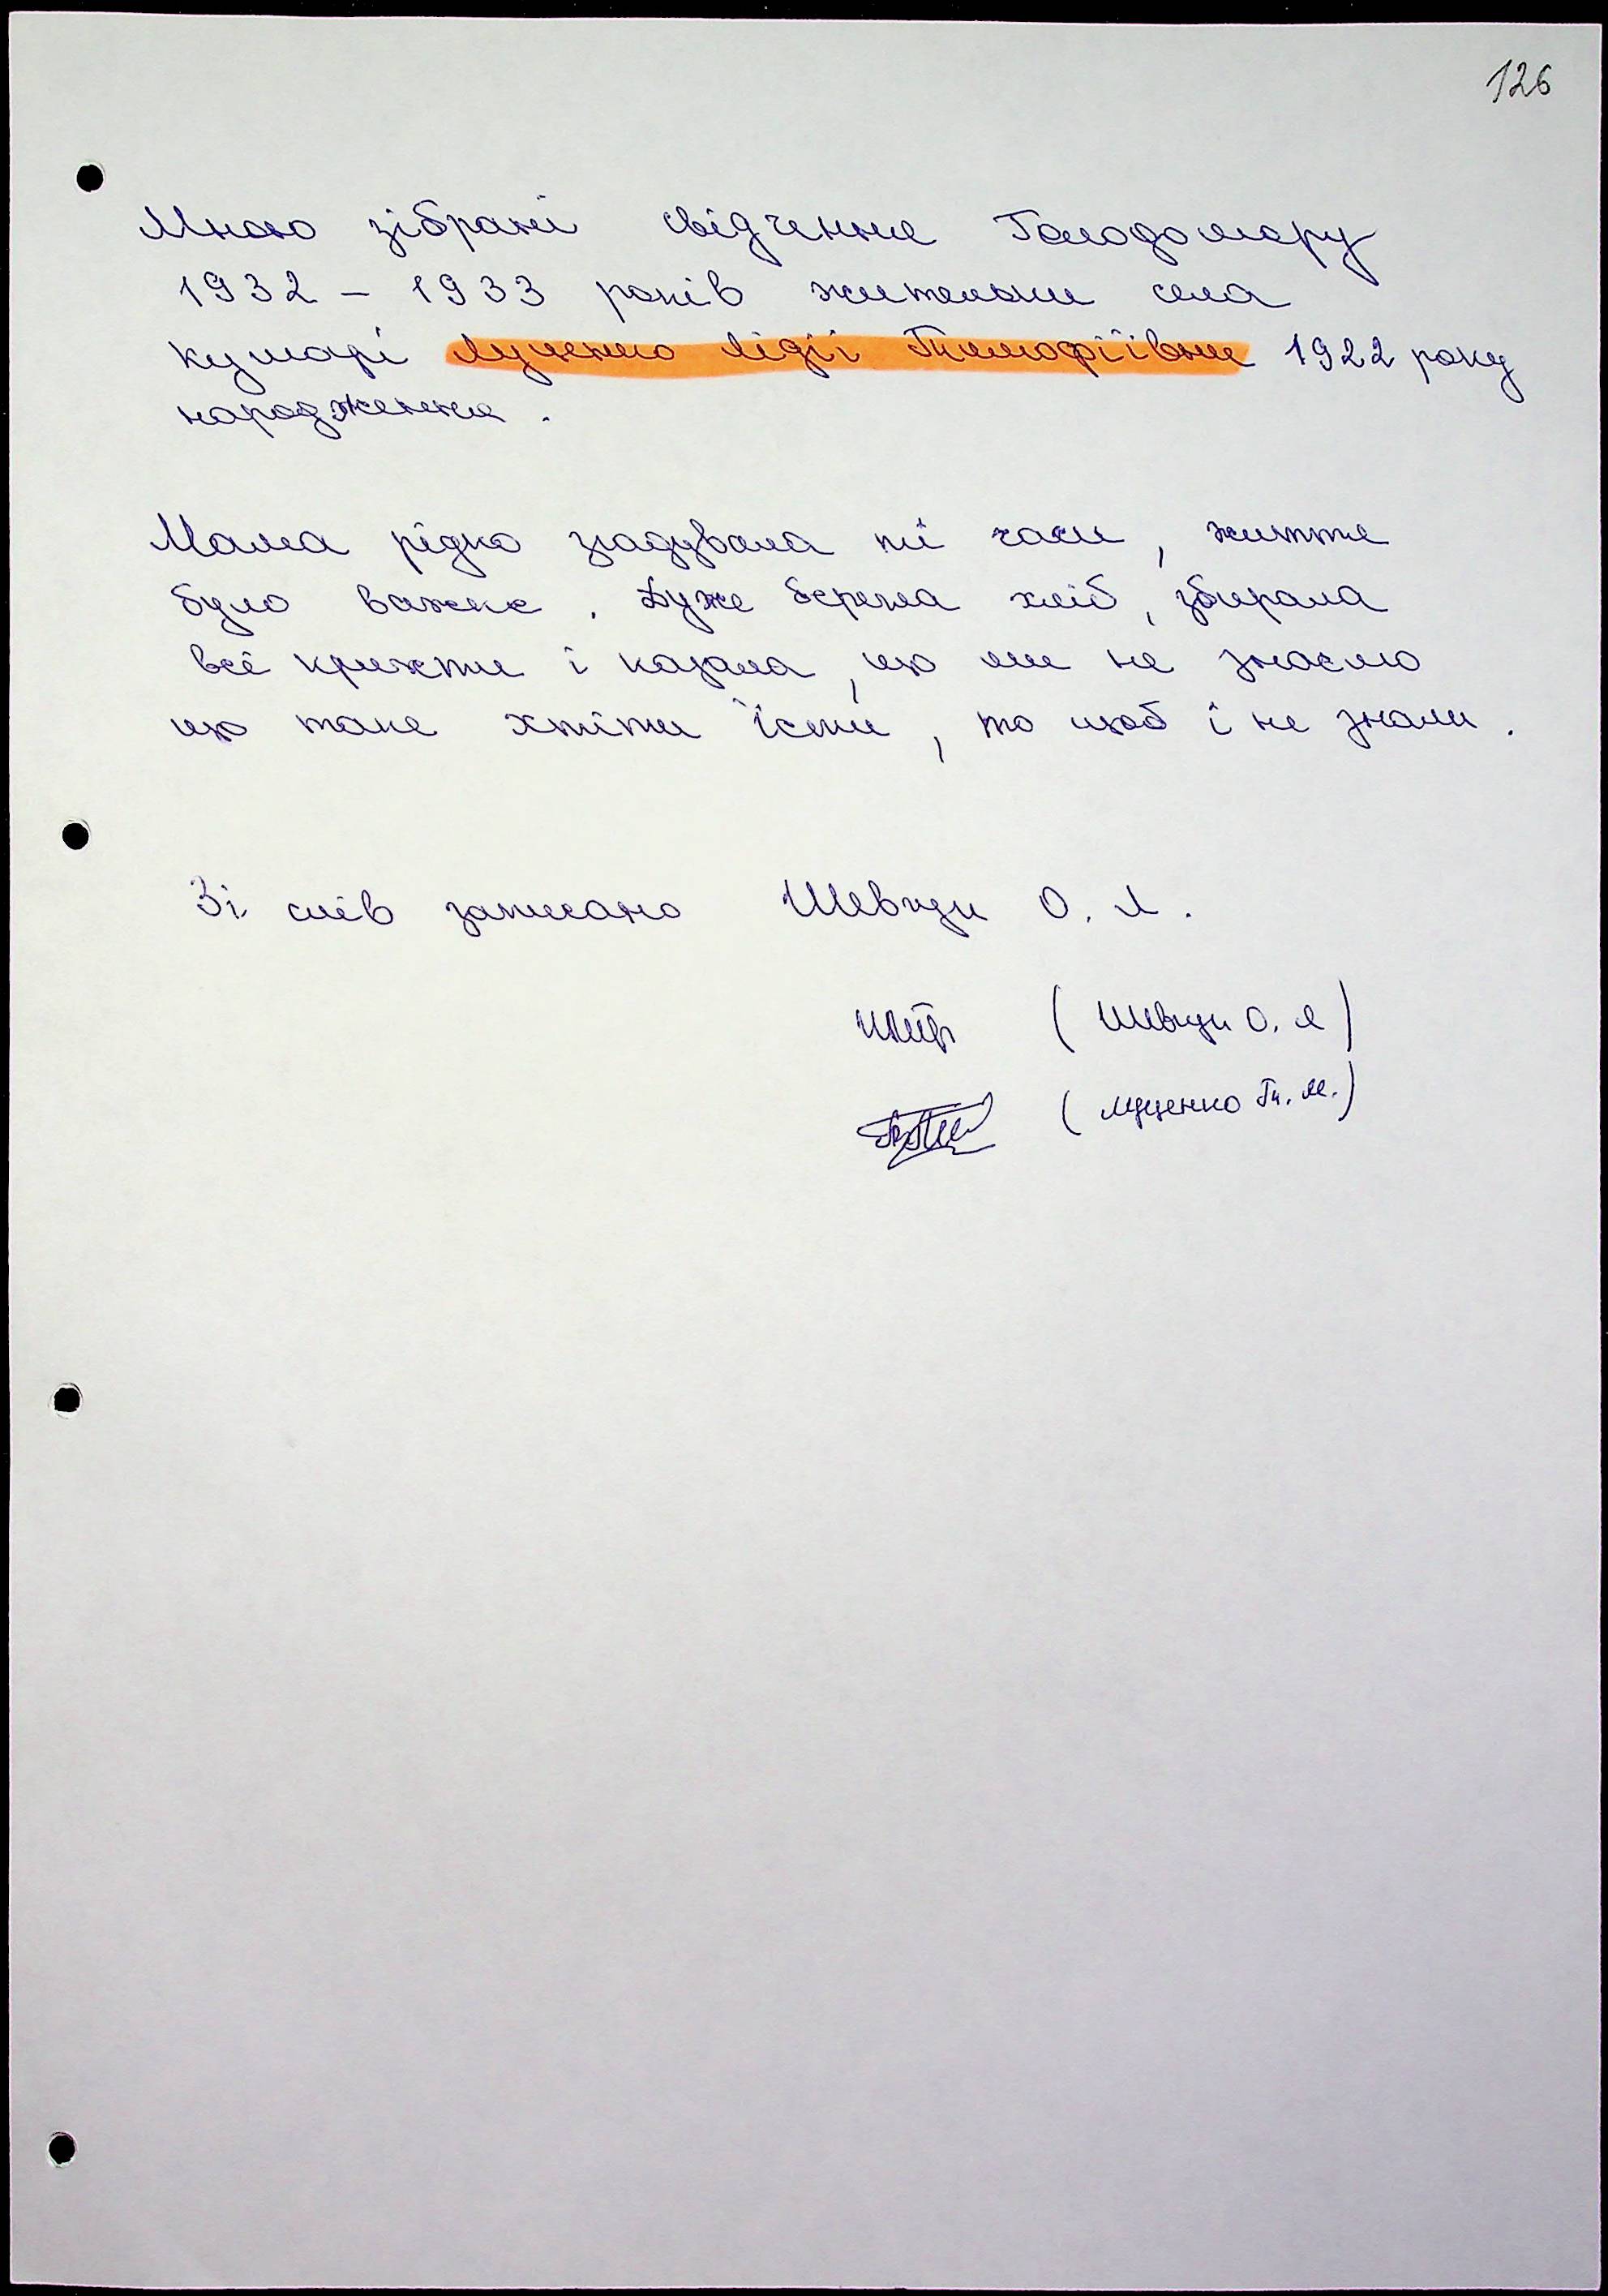 126
Мною зібрані свідчення Голодомору
1932 - 1933 років жительки села
Кумарі Луценко Лідії Тимофіївни 1922 року
народження.
Мама рідко згадувала ті часи, життя
було важке. Дуже берегла хліб, збирала
всі крихти і казала, що ми не знаємо
що таке хтіти їсти, то щоб і не знали.
Зі слів записано Шевчук О. Л.
(Шевчук О. Л)
(Луценко Т. М.)